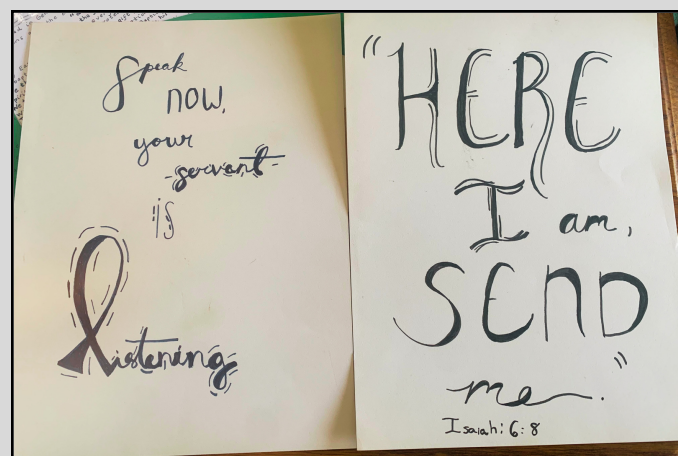 Speak
NOW,
your
-servent-
is
Listening
"HERE
I am,
SEND
me."
Isaiah: 6:8